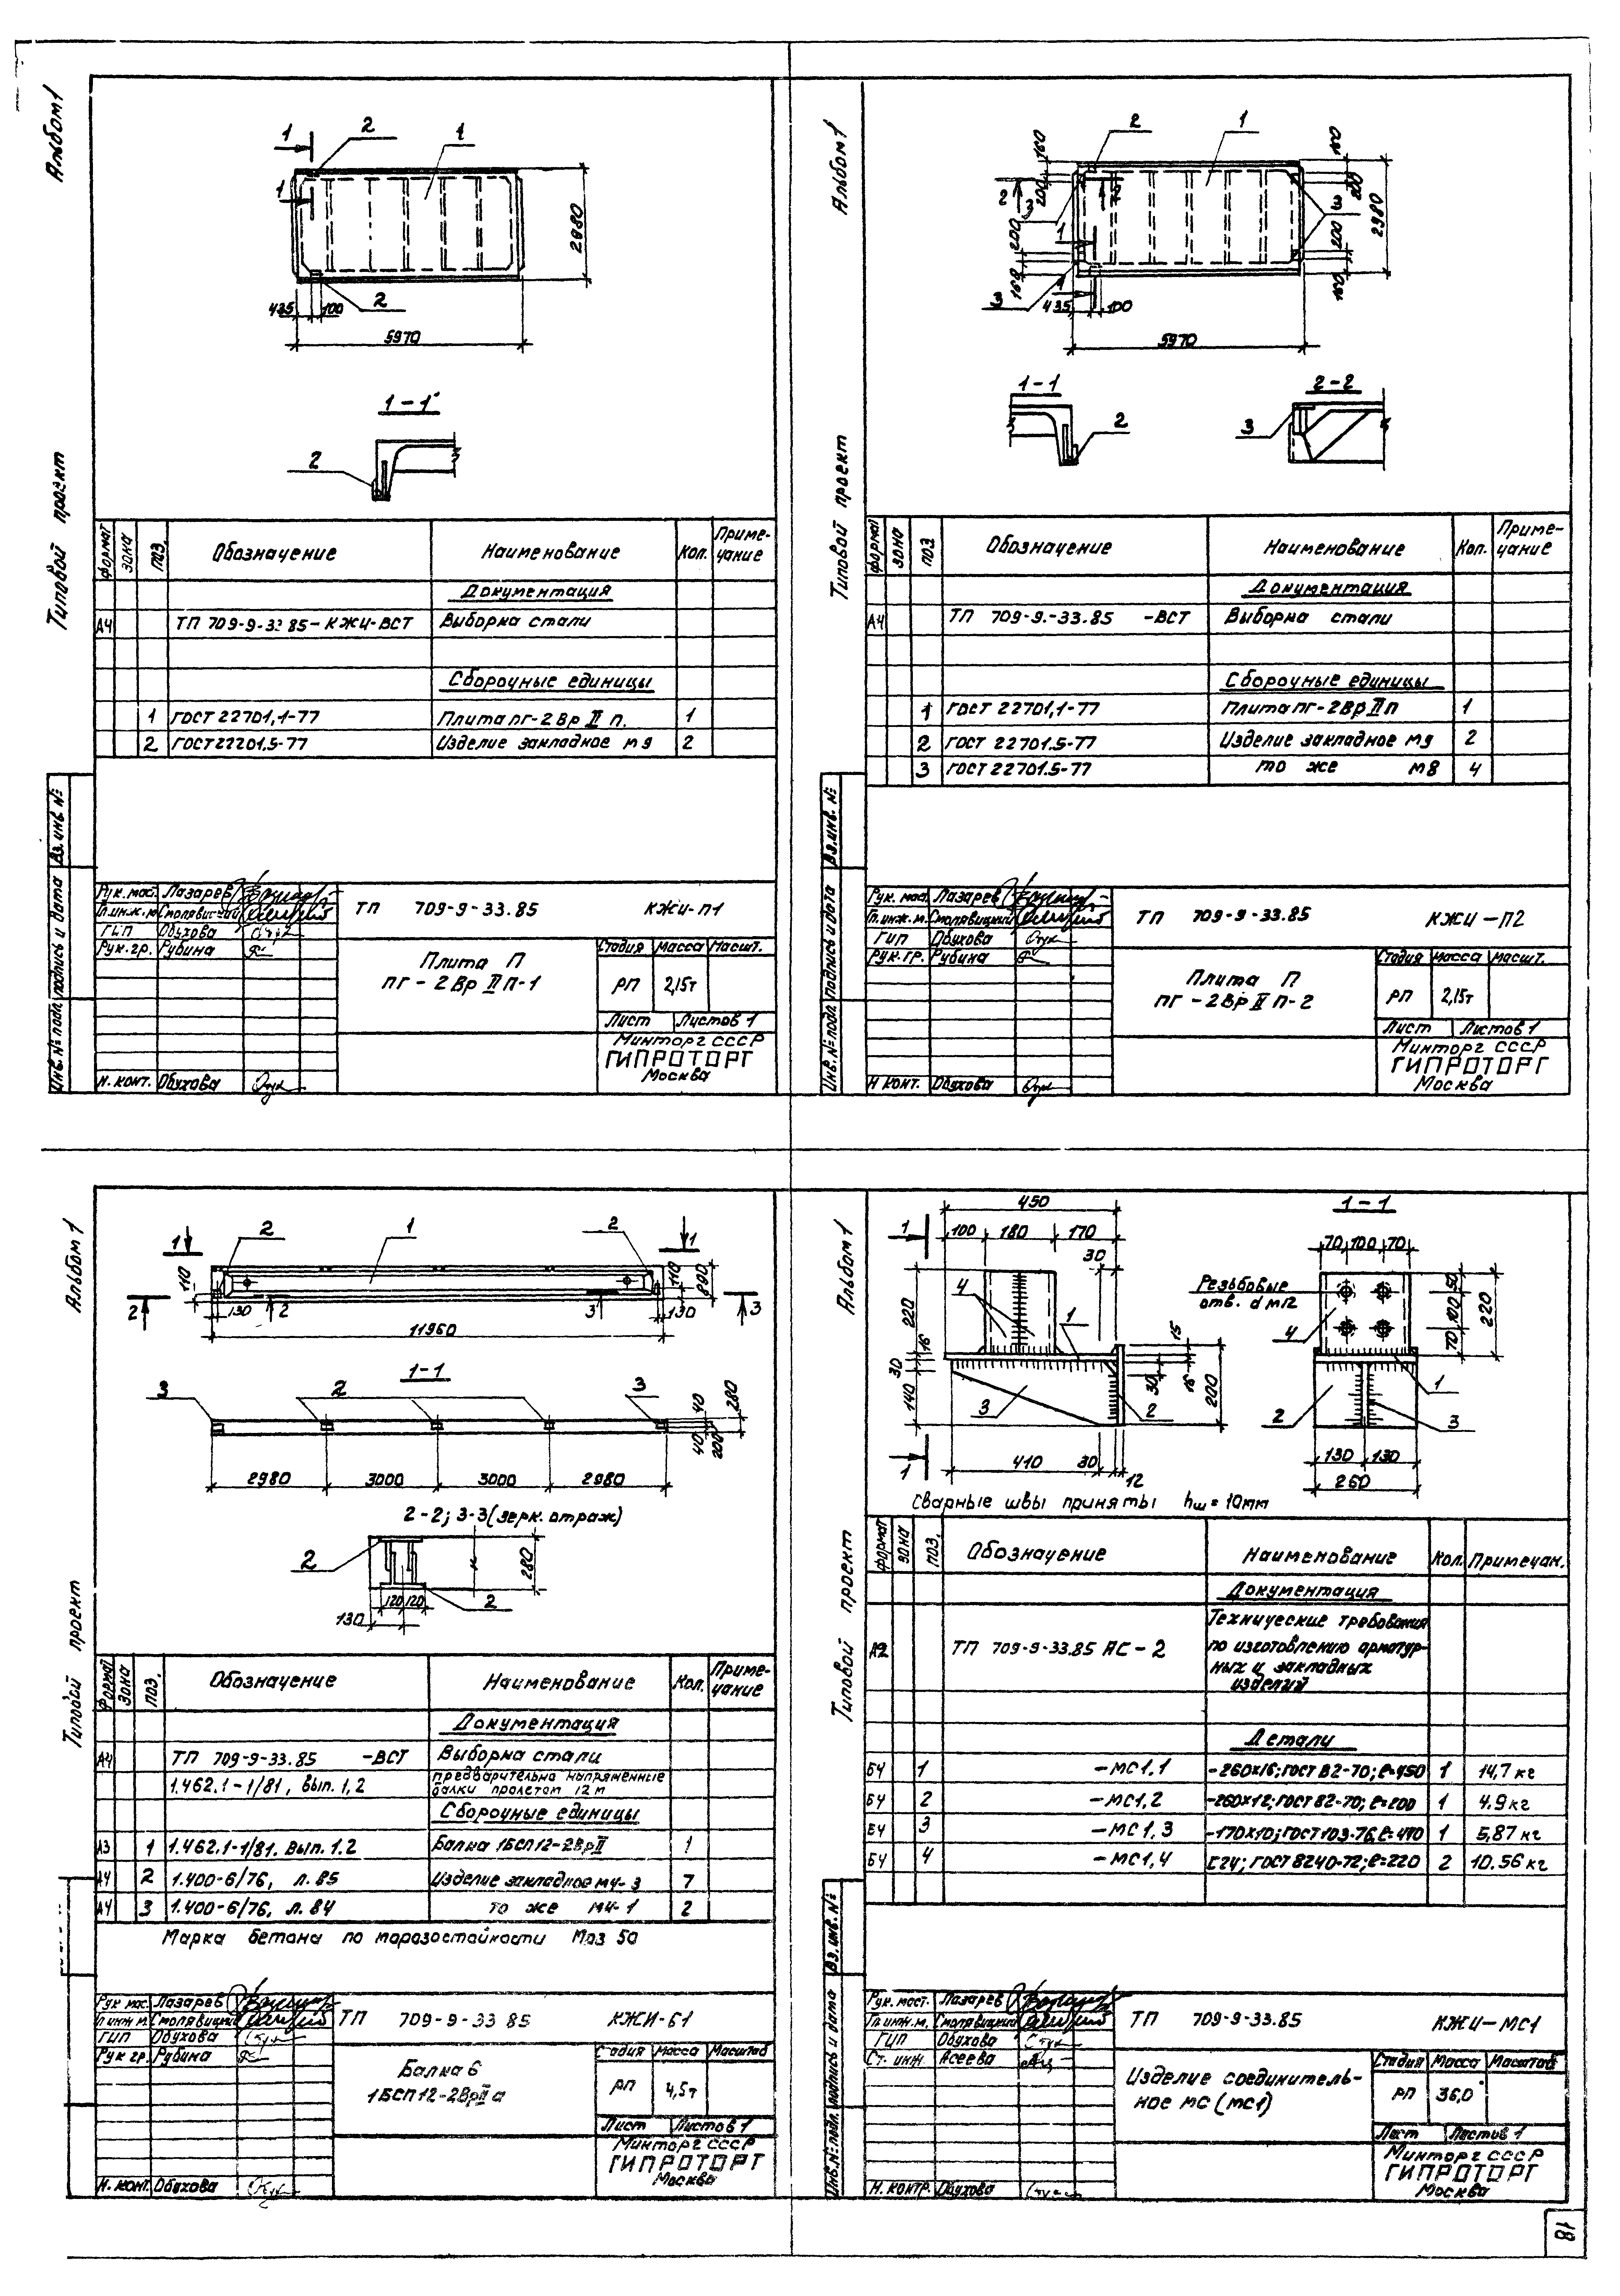 Альбом 1
Типовой проект
1
2
1
1
2
2980
435
100
5970
1-1
2
формат
зона
поз.
Обозначение
Наименование
Кол.
Приме-
чание
Документация
А4 ТП 709-9-33 85-КЖИ-ВСТ Выборка стали
Сборочные единицы
1 ГОСТ 22701,1-77 Плита пг-2Вр II п. 1
2 ГОСТ 22701.5-77 Изделие закладное м9 2
Инв.№ подл. Подпись и дата Вз. инв №
Рук. мас. Лазарев
Гл.инж.м Смолявицкий
ГИП Обухова
Рук. гр. Рубина
Н. конт. Обухова
ТП 709-9-33.85 КЖИ-П1
Плита П
ПГ-2Вр II п-1
Стадия Масса Масшт.
РП 2,15т
Лист Листов 1
Минторг СССР
ГИПРОТОРГ
Москва
Альбом 1
Типовой проект
2
1
160
200
2
3
200
160
3
435
100
5970
2980
3
1-1
2
2-2
3
формат
зона
поз
Обозначение
Наименование
Кол.
Приме-
чание
Документация
А4 ТП 709-9.-33.85 -ВСТ Выборка стали
Сборочные единицы
1 ГОСТ 22701,1-77 Плита пг-2Вр II п 1
2 ГОСТ 22701.5-77 Изделие закладное м9 2
3 ГОСТ 22701.5-77 то же м8 4
Инв.№ подл Подпись и дата Вз.инв. №
Рук. мас. Лазарев
Гл.инж.м. Смолявицкий
ГИП Обухова
Рук. гр. Рубина
Н конт. Обухова
ТП 709-9-33.85 КЖИ-П2
Плита П
ПГ-2Вр II п-2
Стадия Масса Масшт.
РП 2,15т
Лист Листов 1
Минторг СССР
ГИПРОТОРГ
Москва
Альбом 1
Типовой проект
1 2 1 2 1
110
110
890
2 130 2 3 130 3
11960
1-1
3 2 3
40
280
40
200
2980 3000 3000 2980
2-2; 3-3 (зерк. отраж)
2
280
120 120
2
130
формат
зона
поз.
Обозначение
Наименование
Кол.
Приме-
чание
Документация
А4 ТП 709-9-33.85 -ВСТ Выборка стали
1.462.1-1/81, вып. 1,2 предварительно напряженные
балки пролетом 12м
Сборочные единицы
А3 1 1.462.1-1/81. вып. 1.2 Балка 1БСП12-2Вр II 1
А4 2 1.400-6/76, л. 85 Изделие закладное м4-3 7
А4 3 1.400-6/76, л. 84 то же м4-1 2
Марка бетона по морозостойкости Мрз 50
Рук мас. Лазарев
Гл инж м. Смолявицкий
ГИП Обухова
Рук гр. Рубина
Н. конт. Обухова
ТП 709-9-33 85 КЖИ-Б1
Балка Б
1БСП12-2Вр II а
Стадия Масса Масштаб
РП 4,5т
Лист Листов 1
Минторг СССР
ГИПРОТОРГ
Москва
Альбом 1
Типовой проект
450
1
100 180 170
30
4
1
220
16
30
140
15
16
30
200
3
2
410 30
12
1
1-1
70 100 70
Резьбовые
отв. d м12
50
100
70
220
4
1
2
3
130 130
260
Сварные швы приняты hш = 10мм
формат
зона
поз.
Обозначение
Наименование
Кол.
Примечан.
Документация
А2 ТП 709-9-33.85 АС-2 Технические требования
по изготовлению арматур-
ных и закладных
изделий
Детали
БЧ 1 -МС1,1 -260х16; ГОСТ 82-70; ℓ=450 1 14,7 кг
БЧ 2 -МС1,2 -260х12; ГОСТ 82-70; ℓ=200 1 4.9 кг
БЧ 3 -МС1,3 -170х10; ГОСТ 103-76, ℓ=410 1 5,87 кг
БЧ 4 -МС1,4 С24; ГОСТ 8240-72; ℓ=220 2 10.56 кг
Инв.№ подл. Подпись и дата Вз. инв. №
Рук. маст. Лазарев
Гл. инж.м. Смолявицкий
ГИП Обухова
Ст. инж Асеева
Н. контр. Обухова
ТП 709-9-33.85 КЖИ-МС1
Изделие соединитель-
ное мс (мс1)
Стадия Масса Масштаб
РП 36,0
Лист Листов 1
Минторг СССР
ГИПРОТОРГ
Москва
18